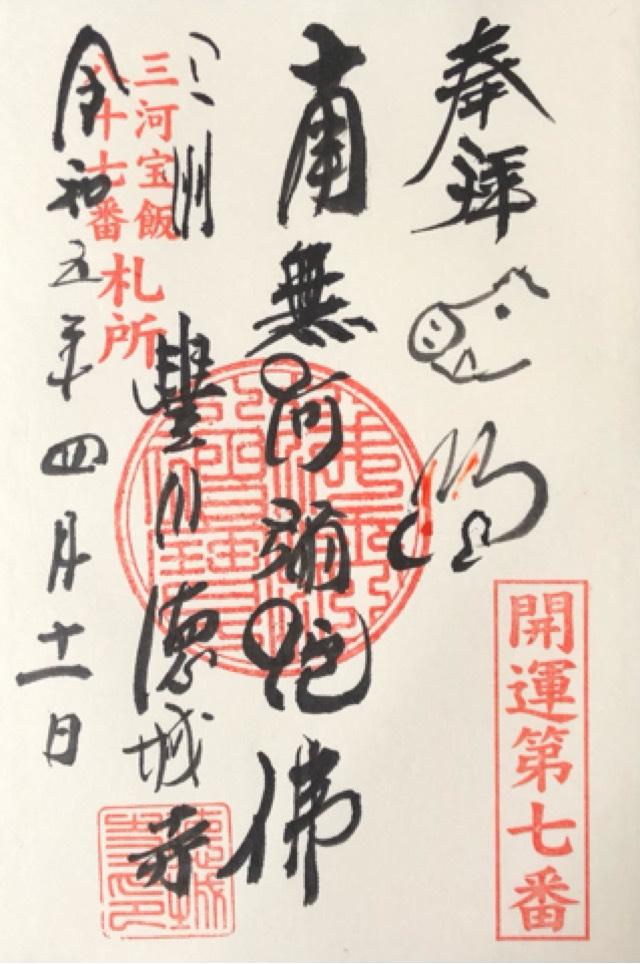 奉拜
開運第七番
南無阿彌陀佛
三河宝飯
八十七番
札所
三州 豐川 德城寺
令和五年四月十一日